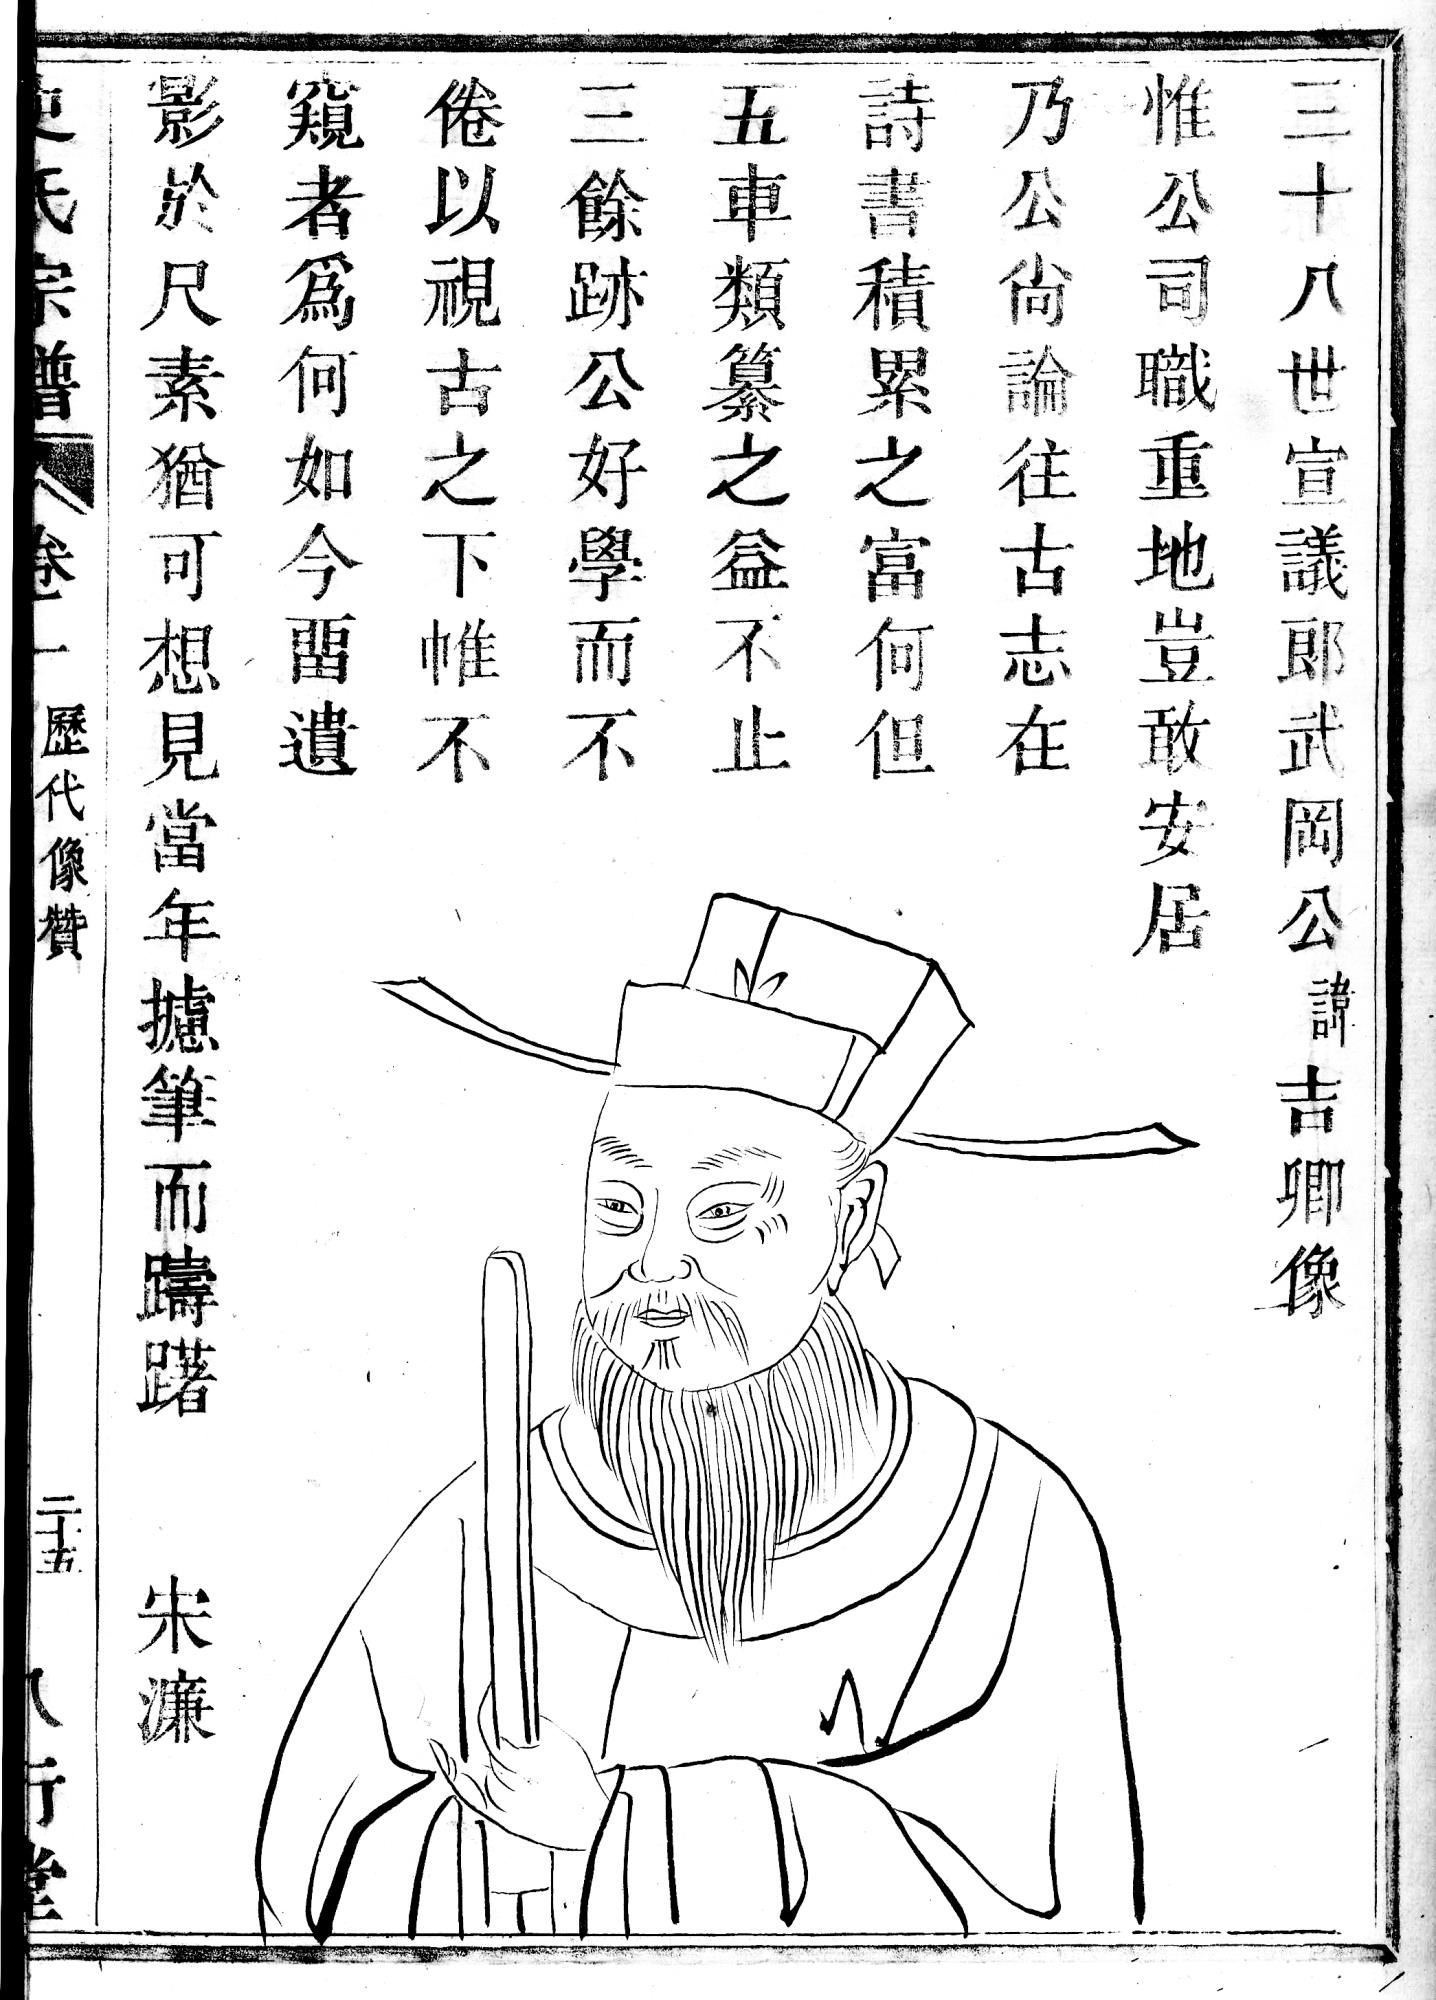 三十八世宣議郎武岡公諱吉卿像
惟公司職重地豈敢安居
乃公尙論往古志在
詩書積累之富何但
五車類纂之益不止
三餘跡公好學而不
倦以視古之下帷不
窺者為何如今畱遺
影於尺素猶可想見當年攄筆而躊躇
宋濂
史氏宗譜
卷一
歷代像贊
二十五
八行堂